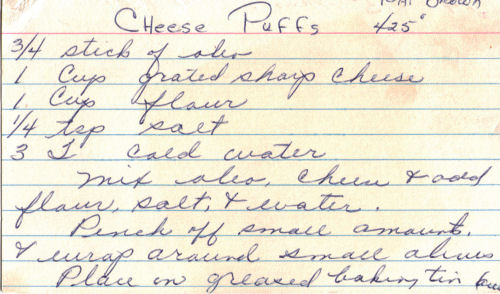 Pat Brown
Cheese Puffs 425°
3/4 stick of oleo
1 Cup grated sharp cheese
1 Cup flour
1/4 tsp salt
3 T cold water
Mix oleo, cheese & add
flour, salt, & water.
Pinch off small amounts,
& wrap around small olives
Place on greased baking tin